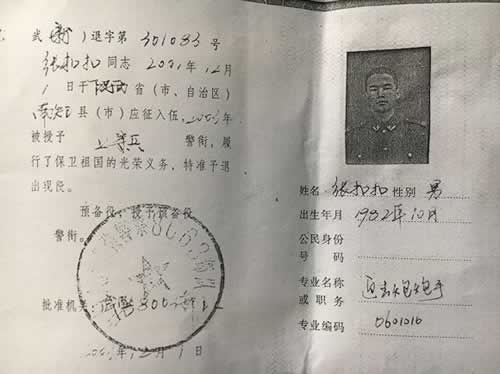 武(新)退字第301083号
张扣扣同志 2001年12月
1日于陕西省(市、自治区)
南郑县(市)应征入伍,2003年
被授予 上等兵 警衔,履
行了保卫祖国的光荣义务,特准予退
出现役。
预备役:授予预备役
警衔。
批准机关:
2003年12月1日
姓名 张扣扣 性别 男
出生年月 1982年10月
公民身份
号码
专业名称
或职务 迫击炮炮手
专业编码 0601010